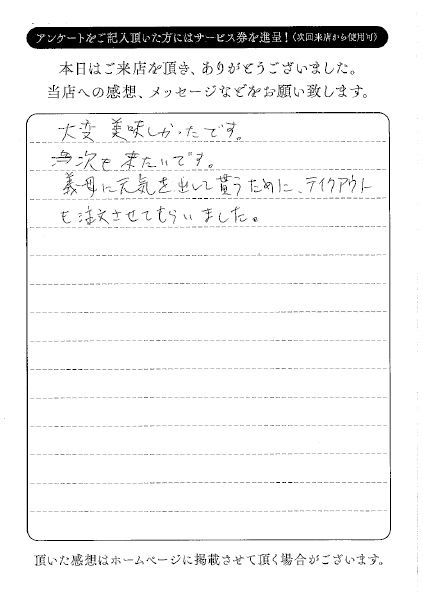 アンケートをご記入頂いた方にはサービス券を進呈！(次回来店から使用可)
本日はご来店を頂き、ありがとうございました。
当店への感想、メッセージなどをお願い致します。
大変 美味しかったです。
次も 来たいです。
義母に元気を出して貰うために、テイクアウト
も注文させてもらいました。
頂いた感想はホームページに掲載させて頂く場合がございます。